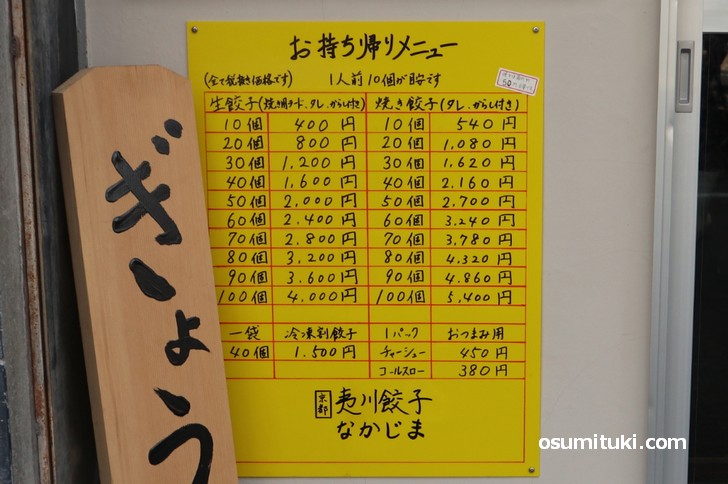 お持ち帰りメニュー
(全て税抜き価格です) 1人前10個が目安です
生餃子(焼き用ラード、タレ、からし付き) 焼き餃子(タレ、からし付き)
10個 400円 10個 540円
20個 800円 20個 1,080円
30個 1,200円 30個 1,620円
40個 1,600円 40個 2,160円
50個 2,000円 50個 2,700円
60個 2,400円 60個 3,240円
70個 2,800円 70個 3,780円
80個 3,200円 80個 4,320円
90個 3,600円 90個 4,860円
100個 4,000円 100個 5,400円
一袋 冷凍割餃子 1パック おつまみ用
40個 1,500円 チャーシュー 450円
コールスロー 380円
京都 夷川餃子
なかじま
ぎょう
osumituki.com